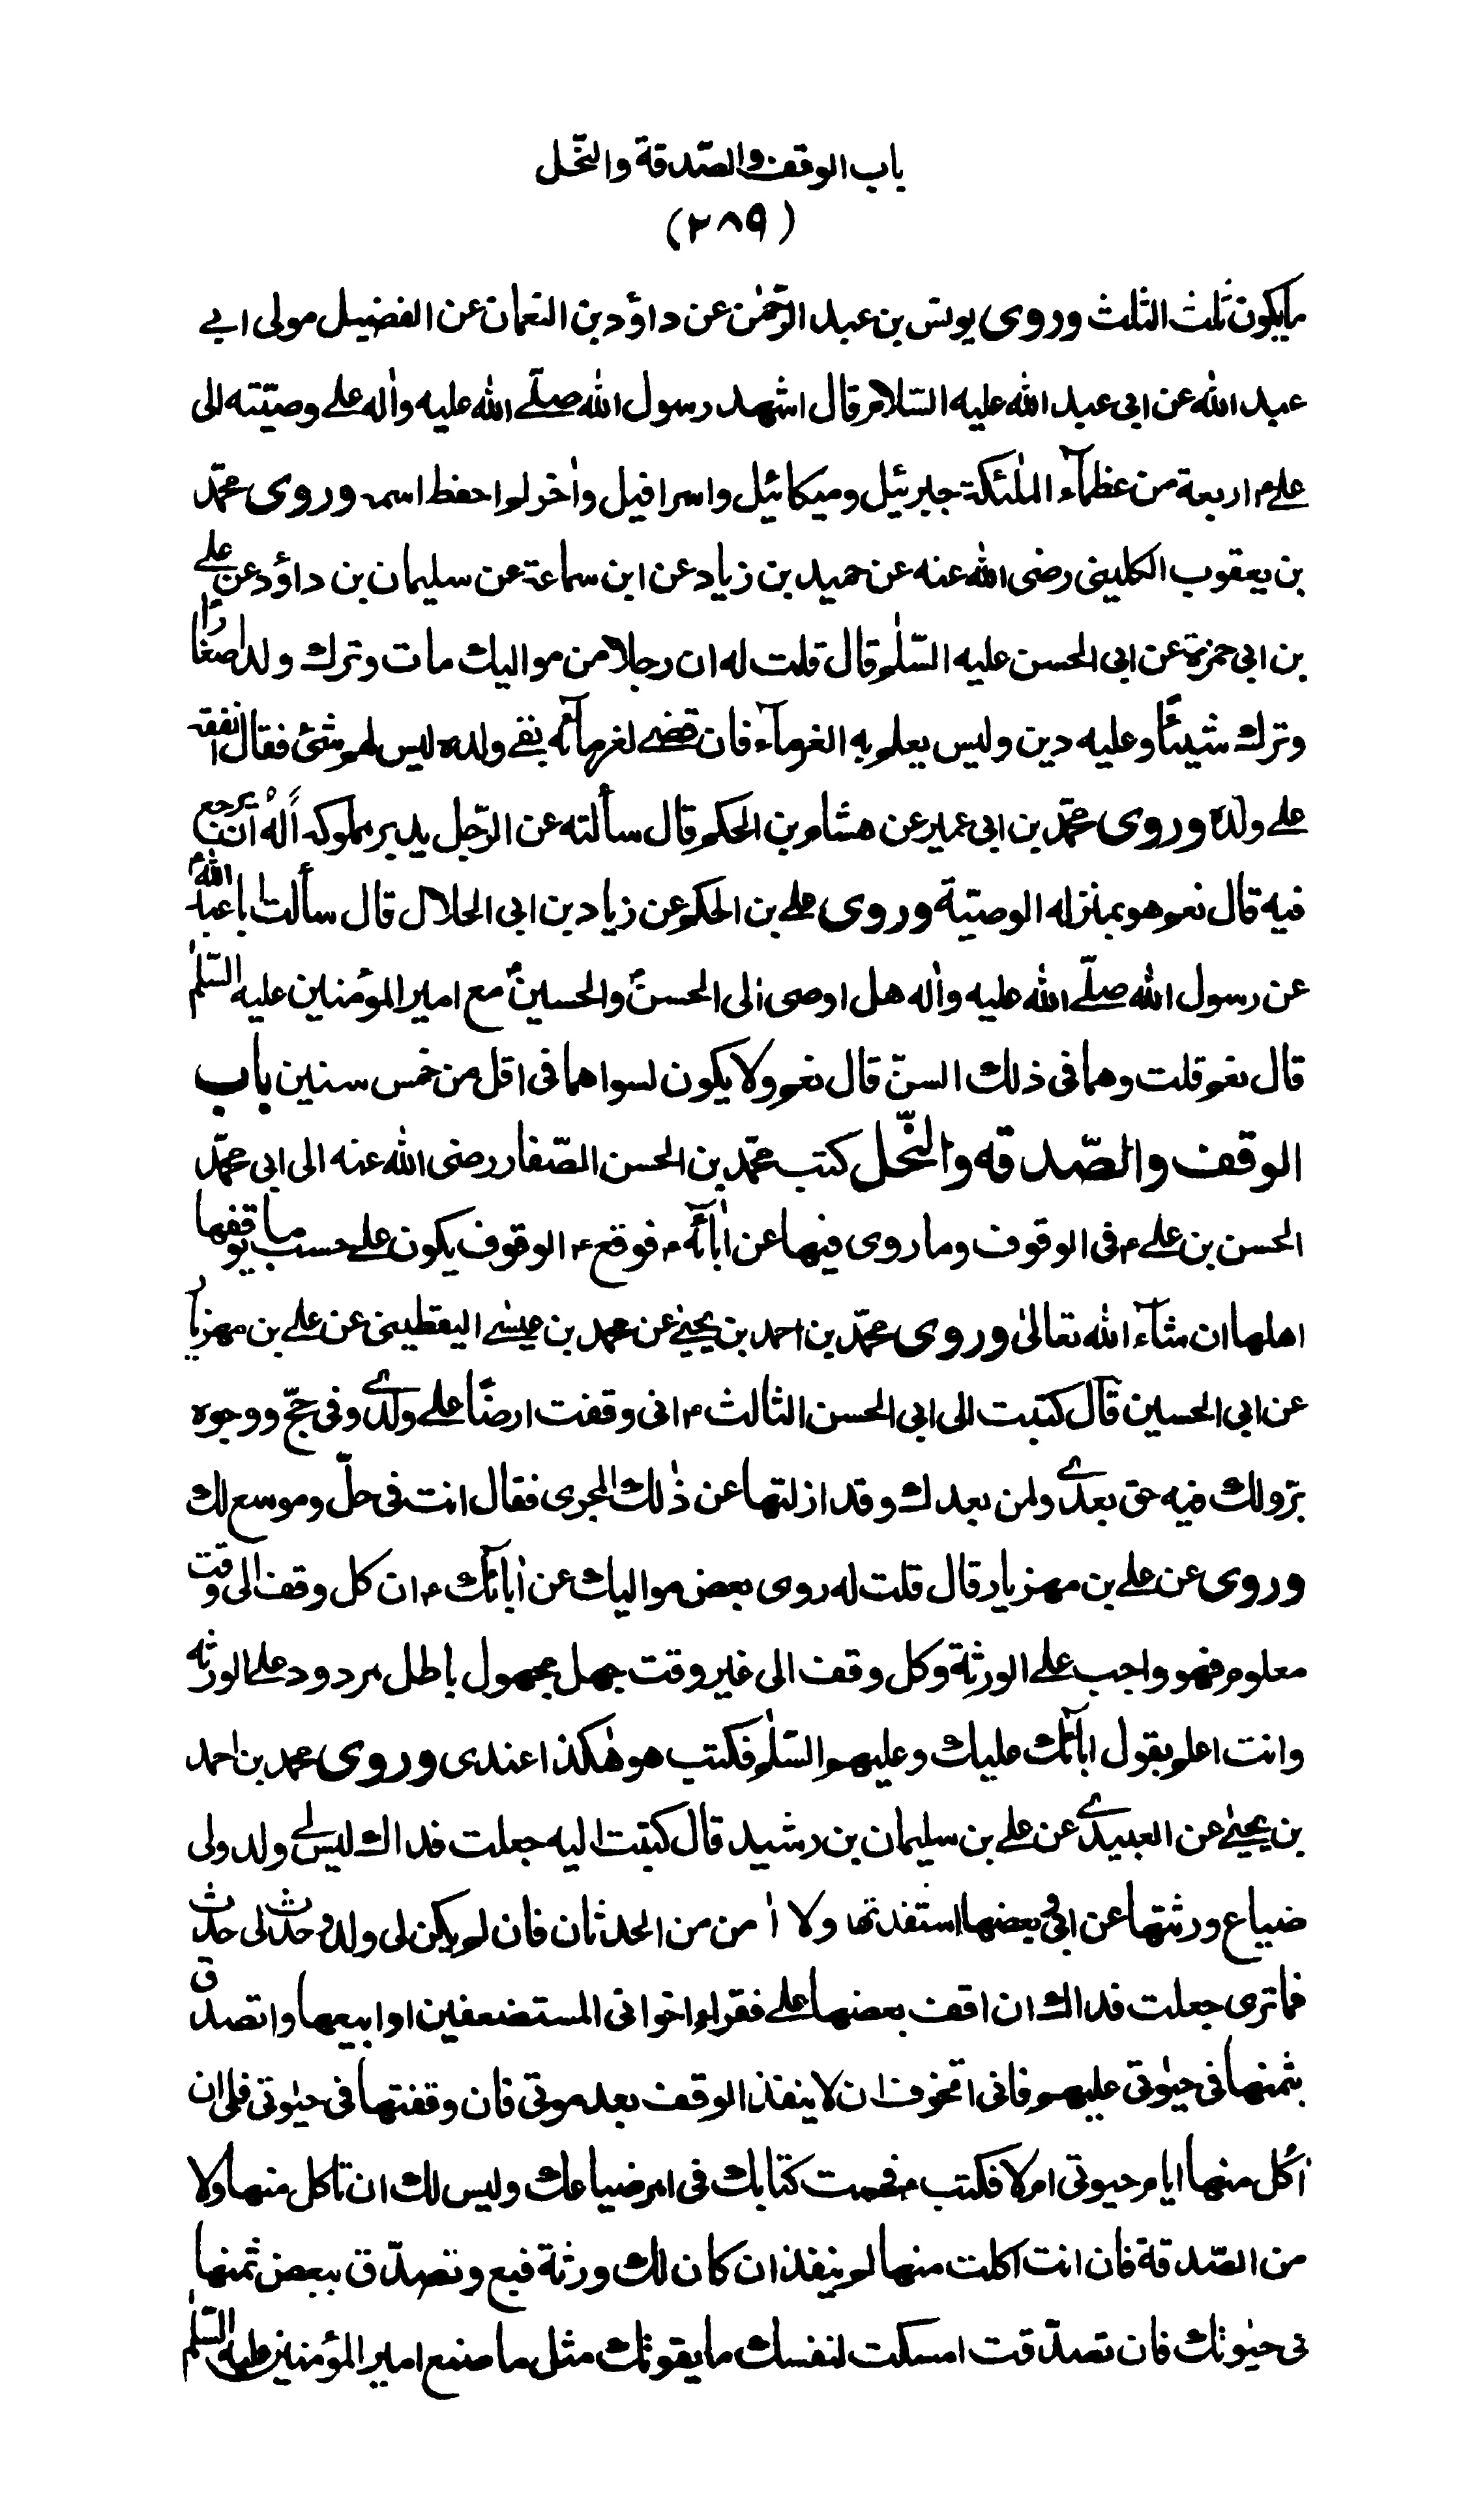 باب الوقف والصّدقة والنّحل
(٢٨٩)
مايكون ثلث الثلث وروى يونس بن عبد الرّحمٰن عن داؤد بن النعمان عن الفضيل مولى ابي
عبد الله عن ابى عبد الله عليه السّلام قال اشهد رسول الله صلّى الله عليه واٰله على وصيّته الى
علىم اربعة من عظمآء الملٰئكة جبرئيل وميكائيل واسرافيل واٰخر لم احفظ اسمه وروى محمّد
بن يعقوب الكلينى رضى الله عنه عن حميد بن زياد عن ابن سماعة عن سليمان بن داؤد عن على
بن ابى حمزة عن ابى الحسن عليه السّلٰم قال قلت له ان رجلا من مواليك مات وترك ولدا صغارا
وترك شيئًا وعليه دين وليس يعلم به الغرمآء فان قضى لغرمآئه بقى ولده ليس لهم شئ فقال انفقه
على ولده وروى محمّد بن ابى عمير عن هشام بن الحكم قال سألته عن الرّجل يدبر مملوكه أله ان يرجع
فيه قال نعم هو بمنزله الوصيّة وروى على بن الحكم عن زياد بن ابى الحلال قال سألت ابا عبد اللهؑ
عن رسول الله صلّى الله عليه واٰله هل اوصى الى الحسنؑ والحسينؑ مع امير المؤمنين عليه السّلٰم
قال نعم قلت وهما فى ذلك السنّ قال نعم ولا يكون لسواهما فى اقل من خمس سنين باب
الوقف والصّدقه والنّحل كتب محمّد بن الحسن الصّفار رضى الله عنه الى ابى محمّد
الحسن بن علىم فى الوقوف وما روى فيها عن اٰبآئهم فوقعم الوقوف يكون على حسب ما يوقفها
اهلها ان شآء الله تعالىٰ وروى محمّد بن احمد بن يحيىٰ عن محمد بن عيسٰى اليقطينى عن على بن مهزيار
عن ابى الحسين قال كتبت الى ابى الحسن الثالثم انى وقفت ارضًا على ولدى وفى حجّ ووجوه
برّ ولك فيه حق بعدى ولمن بعدك وقد ازلتها عن ذٰلك المجرى فقال انت فى حلّ وموسع لك
وروى عن على بن مهزيار قال قلت له روى بعض مواليك عن اٰبآئكم ان كل وقف الى وقت
معلوم فهو واجب على الورثة وكل وقف الى غير وقت جهل مجهول باطل مردود على الورثه
وانت اعلم بقول ابآئك عليك وعليهم السّلٰم فكتب هو هٰكذا عندى وروى محمد بن احمد
بن يحيىٰ عن العبيدى عن على بن سليمان بن رشيد قال كتبت اليه جعلت فداك ليس لى ولد ولى
ضياع ورثتها عن ابى وبعضها استفدتها ولا اٰمن من الحدثان فان لم يكن لى ولد وحدث لى حدث
فما ترى جعلت فداك ان اقف بعضها على فقراء اخوانى المستضعفين او ابيعها واتصدق
بثمنها فى حيٰوتى عليهم فانى اتخوف ان لا ينفذ الوقف بعد موتى فان وقفتها فى حيٰوتى فلى ان
اٰكل منها ايام حيوتى ام لا فكتبم فهمت كتابك فى امر ضياعك وليس لك ان تاكل منها ولا
من الصّدقة فان انت اكلت منها لم ينفذ ان كان لك ورثة فبع وتصدّق ببعض ثمنها
فى حيٰوتك فان تصدّقت امسكت لنفسك ما يقوتك مثل ما صنع امير المؤمنين عليه السّلٰم